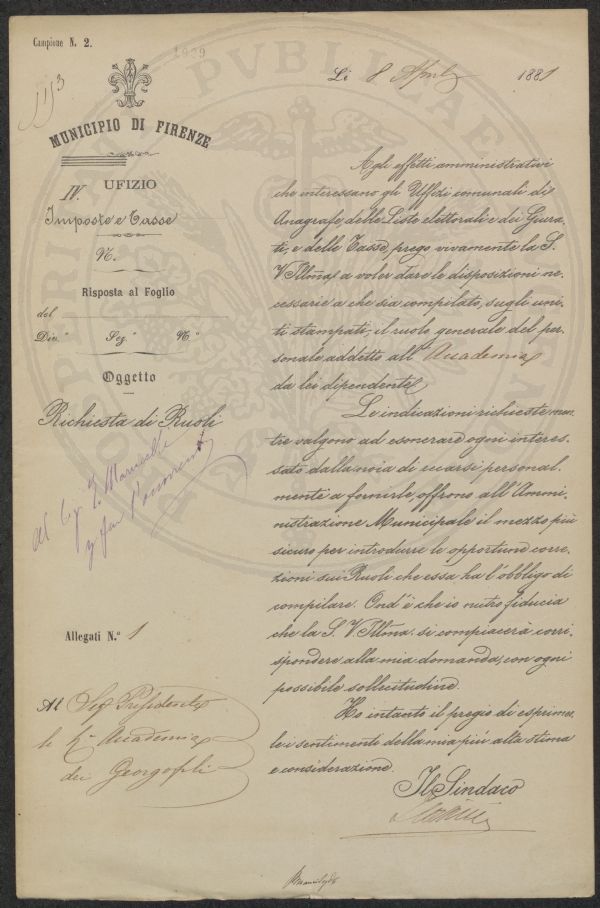 Campione N. 2.
1929
1153
MUNICIPIO DI FIRENZE
IV. UFIZIO
Imposte e Tasse
N.
Risposta al Foglio
del
Div.e Sez.e N.o
Oggetto
Richiesta di Ruoli
Al Sig.
Allegati N.o 1
Al Sig Presidente
la R. Accademia
dei Georgofili
Li 8 Aprile 1881
Agli effetti amministrativi
che interessano gli Uffizi comunali di
Anagrafe, delle Liste elettorali e dei Giura-
ti, e delle Tasse, prego vivamente la S.
V. Illma, a voler dare le disposizioni ne-
cessarie a che sia compilato, sugli uni-
ti stampati, il ruolo generale del per-
sonale addetto all' Accademia
da lei dipendente.
Le indicazioni richieste men-
tre valgono ad esonerare ogni interes-
sato dalla noia di recarsi personal-
mente a fornirle, offrono all' Ammi-
nistrazione Municipale il mezzo più
sicuro per introdurre le opportune corre-
zioni sui Ruoli che essa ha l'obbligo di
compilare. Ond'è che io nutro fiducia
che la S. V. Illma. si compiacerà corri-
spondere alla mia domanda, con ogni
possibile sollecitudine.
Ho intanto il pregio di esprimer-
le i sentimenti della mia più alta stima
e considerazione.
Il Sindaco